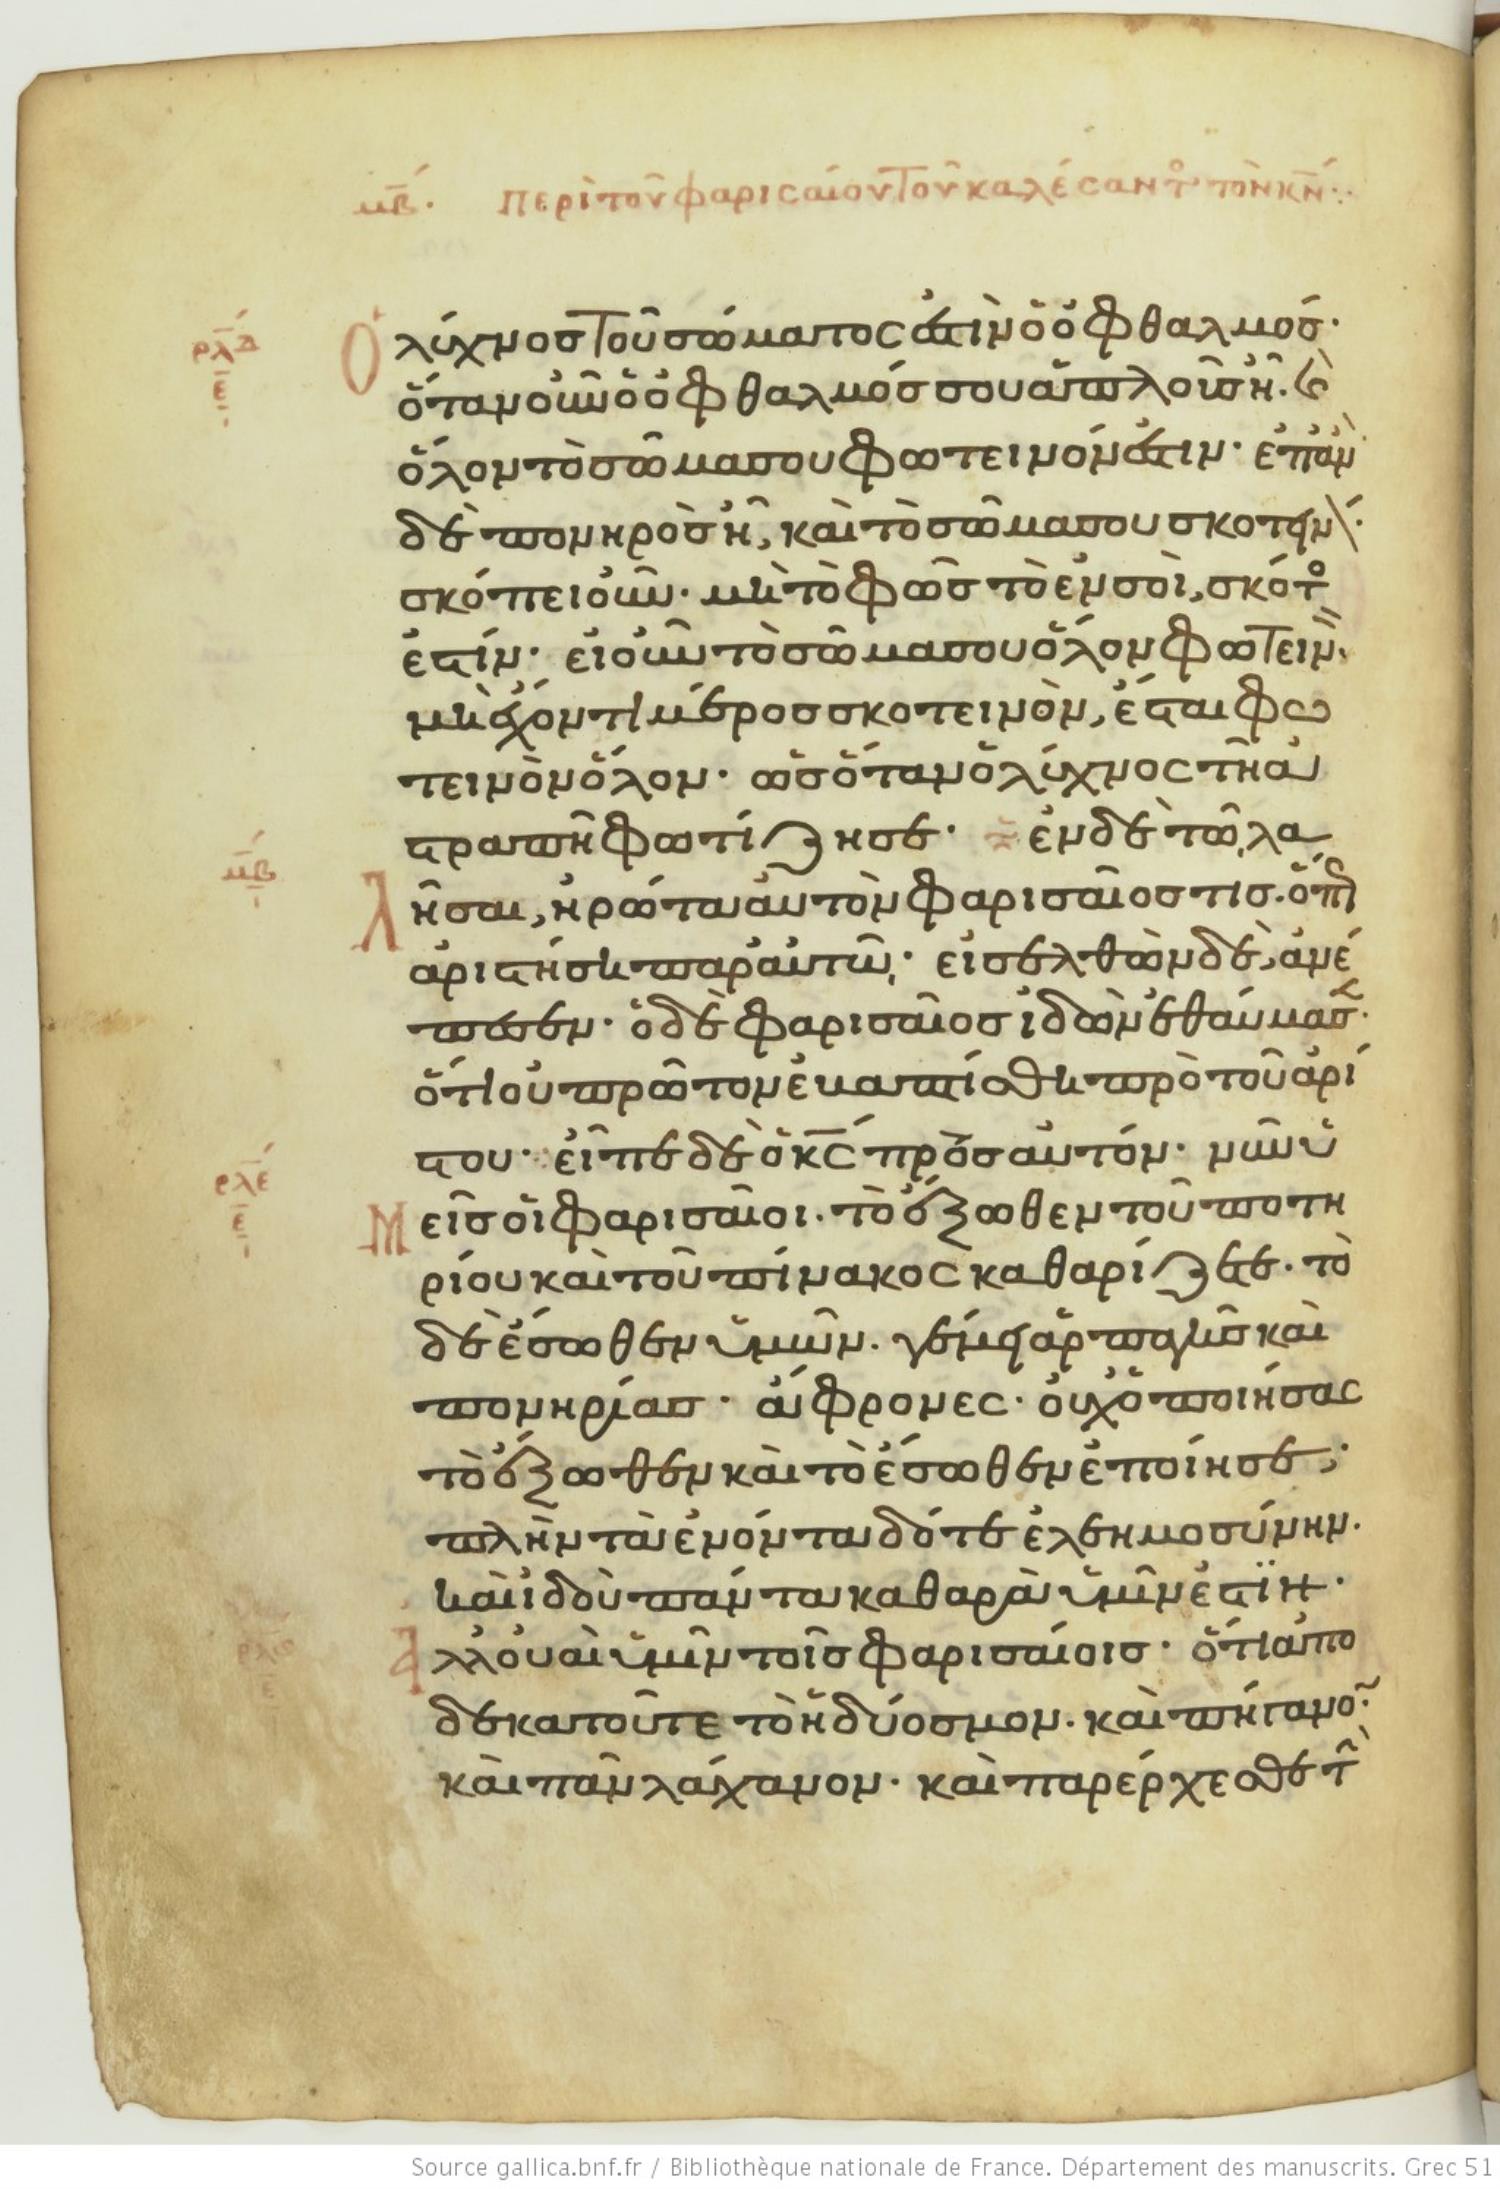 μβ. περὶ τοῦ φαρισαίου τοῦ καλέσαντ(ος) τὸν κν̅
ρλδ
ε
Ὁ λύχνος τοῦ σώματος ἐστὶν ὁ ὀφθαλμός·
ὅταν οὖν ὁ ὀφθαλμός σου ἁπλοῦς ἦ. ϗ
ὅλον τὸ σῶμα σου φωτεινόν ἐστιν· ἐπὰν
δὲ πονηρὸς ἦ, καὶ τὸ σῶμα σου σκοτειν\·
σκόπει οὖν· μὴ τὸ φῶς τὸ ἐν σοὶ, σκότ(ος)
ἐστίν· εἰ οὖν τὸ σῶμα σου ὅλον φωτειν(ὸν)
μὴ ἔχόν τι μέρος σκοτεινὸν, ἔσται φω
τεινὸν ὅλον· ὡς ὅταν ὁ λύχνος τῆ ἀ
στραπῆ φωτίζη σε· ἐν δὲ τῶ λα
μβ
λῆσαι, ἠρώτα αὐτὸν φαρισαῖος τις· ὅπ(ως)
ἀριστήση παρ' αὐτῶ· εἰσελθὼν δὲ, ἀνέ
πεσεν· ὁ δὲ φαρισαῖος ἰδὼν ἐθαύμασ(εν)·
ὅτι οὐ πρῶτον ἐβαπτίσθη πρὸ τοῦ ἀρί
στου· εἶπε δὲ ὁ κς̅ πρὸς αὐτόν· νῦν ὑ
ρλε
ε
μεῖς οἱ φαρισαῖοι· τὸ ἔξωθεν τοῦ ποτη
ρίου καὶ τοῦ πίνακος καθαρίζετε· τὸ
δὲ ἔσωθεν ὑμῶν· γέμει ἁρπαγῆς καὶ
πονηρίας· ἄφρονες· οὐχ ὁ ποιήσας
τὸ ἔξωθεν καὶ τὸ ἔσωθεν ἐποίησε;
πλὴν τὰ ἐνόντα δότε ἐλεημοσύνην·
καὶ ἰδοὺ πάντα καθαρὰ ὑμῖν ἐστϊν·
ρλϛ
ε
ἀλλ' οὐαὶ ὑμῖν τοῖς φαρισαίοις· ὅτι ἀπο
δεκατοῦτε τὸ ἡδύοσμον· καὶ πήγανο(ν)·
καὶ πᾶν λάχανον· καὶ παρέρχεσθε τ(ὴν)
Source gallica.bnf.fr / Bibliothèque nationale de France. Département des manuscrits. Grec 51